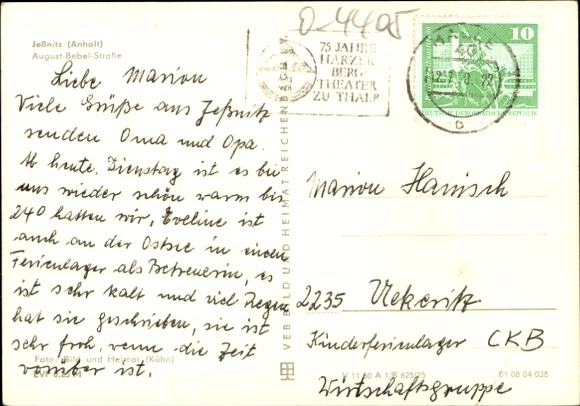 Jeßnitz (Anhalt)
August-Bebel-Straße
Liebe Marion
Viele Grüße aus Jeßnitz
senden Oma und Opa.
Ab heute, Dienstag ist es bei
uns wieder schön warm bis
240 hatten wir, Eveline ist
auch an der Ostsee in einem
Ferienlager als Betreuerin, es
ist sehr kalt und viel Regen
hat sie geschrieben, sie ist
sehr froh, wenn die Zeit
vorüber ist.
Foto: Bild und Heimat (Kühn)
EVP 0,20 M
VEB BILD UND HEIMAT REICHENBACH I.V.
0-4405
75 JAHRE
HARZER
BERG-
THEATER
ZU THALE
10
DEUTSCHE DEMOKRATISCHE REPUBLIK
HALLE
b
Marion Hanisch
2235 Uekeritz
Kinderferienlager CKB
Wirtschaftsgruppe
V 11 50 A 1/B 625/75
01 08 04 038